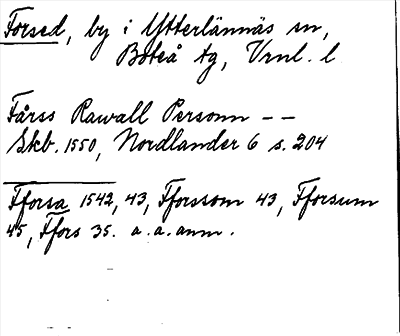 Forsed, by i Ytterlännäs sn,
Boteå tg, Vrnl. l.
Fårss Rawall Personn – –
Skb. 1550, Nordlander 6 s. 204
Fforsa 1542, 43, Fforssom 43, Fforsum
45, Ffors 35. a. a. anm.